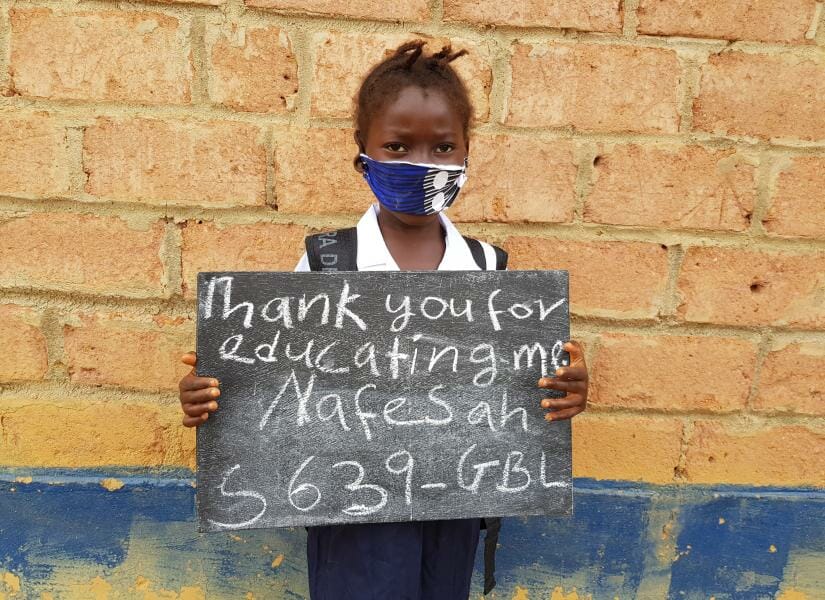 Thank you for
educating me
Nafesah
S639-GBL